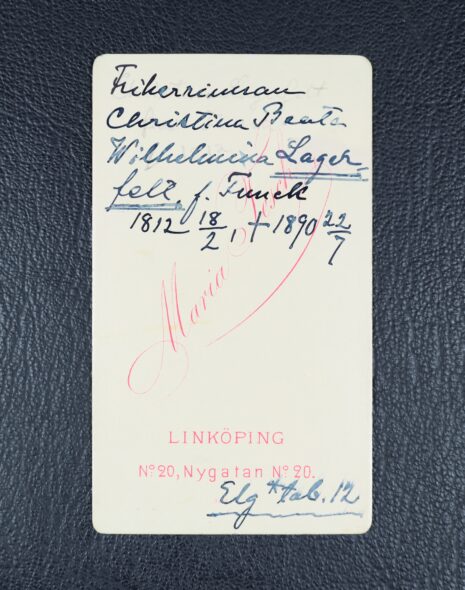 Friherrinnan
Christina Beata
Wilhelmina Lager-
felt, f. Funck
1812 18/2, † 1890 22/7
Maria
LINKÖPING
No 20, Nygatan No 20.
Elg * tab. 12